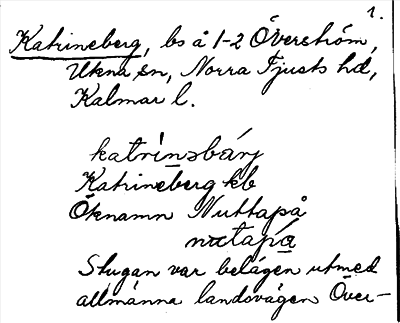 1.
Katrineberg, bs å 1-2 Överström,
Ukna sn, Norra Tjusts hd,
Kalmar l.
katrinəbärj
Katrineberg kb
Öknamn Nuttapå
nutapå
Stugan var belägen utmed
allmänna landsvägen Över-